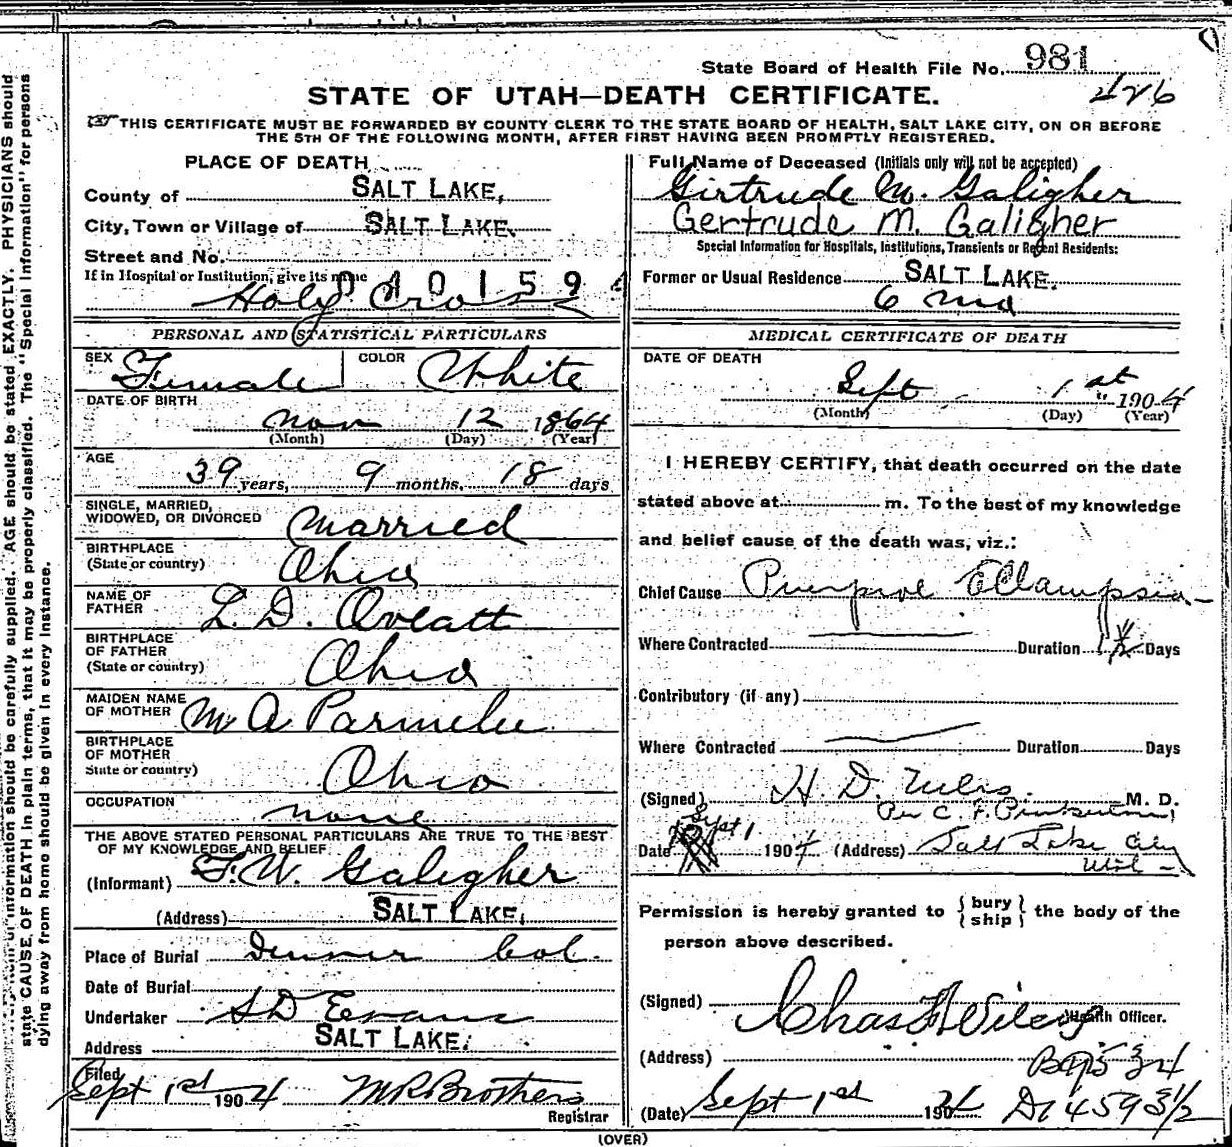 State Board of Health File No. 981
426
STATE OF UTAH—DEATH CERTIFICATE.
THIS CERTIFICATE MUST BE FORWARDED BY COUNTY CLERK TO THE STATE BOARD OF HEALTH, SALT LAKE CITY, ON OR BEFORE
THE 5TH OF THE FOLLOWING MONTH, AFTER FIRST HAVING BEEN PROMPTLY REGISTERED.
PLACE OF DEATH
County of SALT LAKE,
City, Town or Village of SALT LAKE.
Street and No.
If in Hospital or Institution, give its name
040159
Holy Cross
PERSONAL AND STATISTICAL PARTICULARS
SEX Female COLOR White
DATE OF BIRTH
Nov 12 1864
(Month) (Day) (Year)
AGE
39 years, 9 months, 18 days
SINGLE, MARRIED,
WIDOWED, OR DIVORCED Married
BIRTHPLACE
(State or country) Ohio
NAME OF
FATHER L. D. Oveatt
BIRTHPLACE
OF FATHER
(State or country) Ohio
MAIDEN NAME
OF MOTHER M A Parmelee
BIRTHPLACE
OF MOTHER
State or country) Ohio
OCCUPATION none
THE ABOVE STATED PERSONAL PARTICULARS ARE TRUE TO THE BEST
OF MY KNOWLEDGE AND BELIEF
(Informant) F. W. Galigher
(Address) SALT LAKE,
Place of Burial Denver Col.
Date of Burial
Undertaker S D Evans
Address SALT LAKE.
Filed
Sept 1st 1904 M R Brothers
Registrar
Full Name of Deceased (Initials only will not be accepted)
Girtrude M. Galigher
Gertrude M. Galigher
Special Information for Hospitals, Institutions, Transients or Recent Residents:
Former or Usual Residence SALT LAKE.
6 mo
MEDICAL CERTIFICATE OF DEATH
DATE OF DEATH
Sept 1st 1904
(Month) (Day) (Year)
I HEREBY CERTIFY, that death occurred on the date
stated above at m. To the best of my knowledge
and belief cause of the death was, viz.:
Chief Cause Eclampsia
Where Contracted Duration Days
Contributory (if any)
Where Contracted Duration Days
(Signed) H D Niles M. D.
Per C. F.
Date Sept 1 1904 (Address) Salt Lake City
Utah
Permission is hereby granted to {bury ship} the body of the
person above described.
(Signed) Chas Wilcox Health Officer.
(Address)
(Date) Sept 1st 1904
(OVER)
state CAUSE OF DEATH in plain terms, that it may be properly classified. The "Special Information" for persons
dying away from home should be given in every instance.
information should be carefully supplied. AGE should be stated EXACTLY. PHYSICIANS should